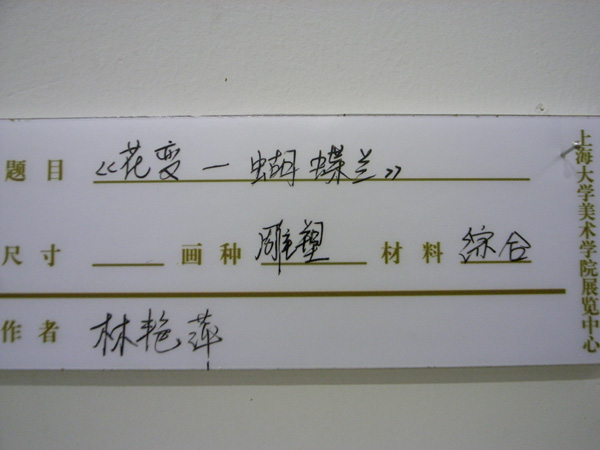 题目 《花变一蝴蝶兰》
尺寸 画种 雕塑 材料 综合
作者 林艳萍
上海大学美术学院展览中心